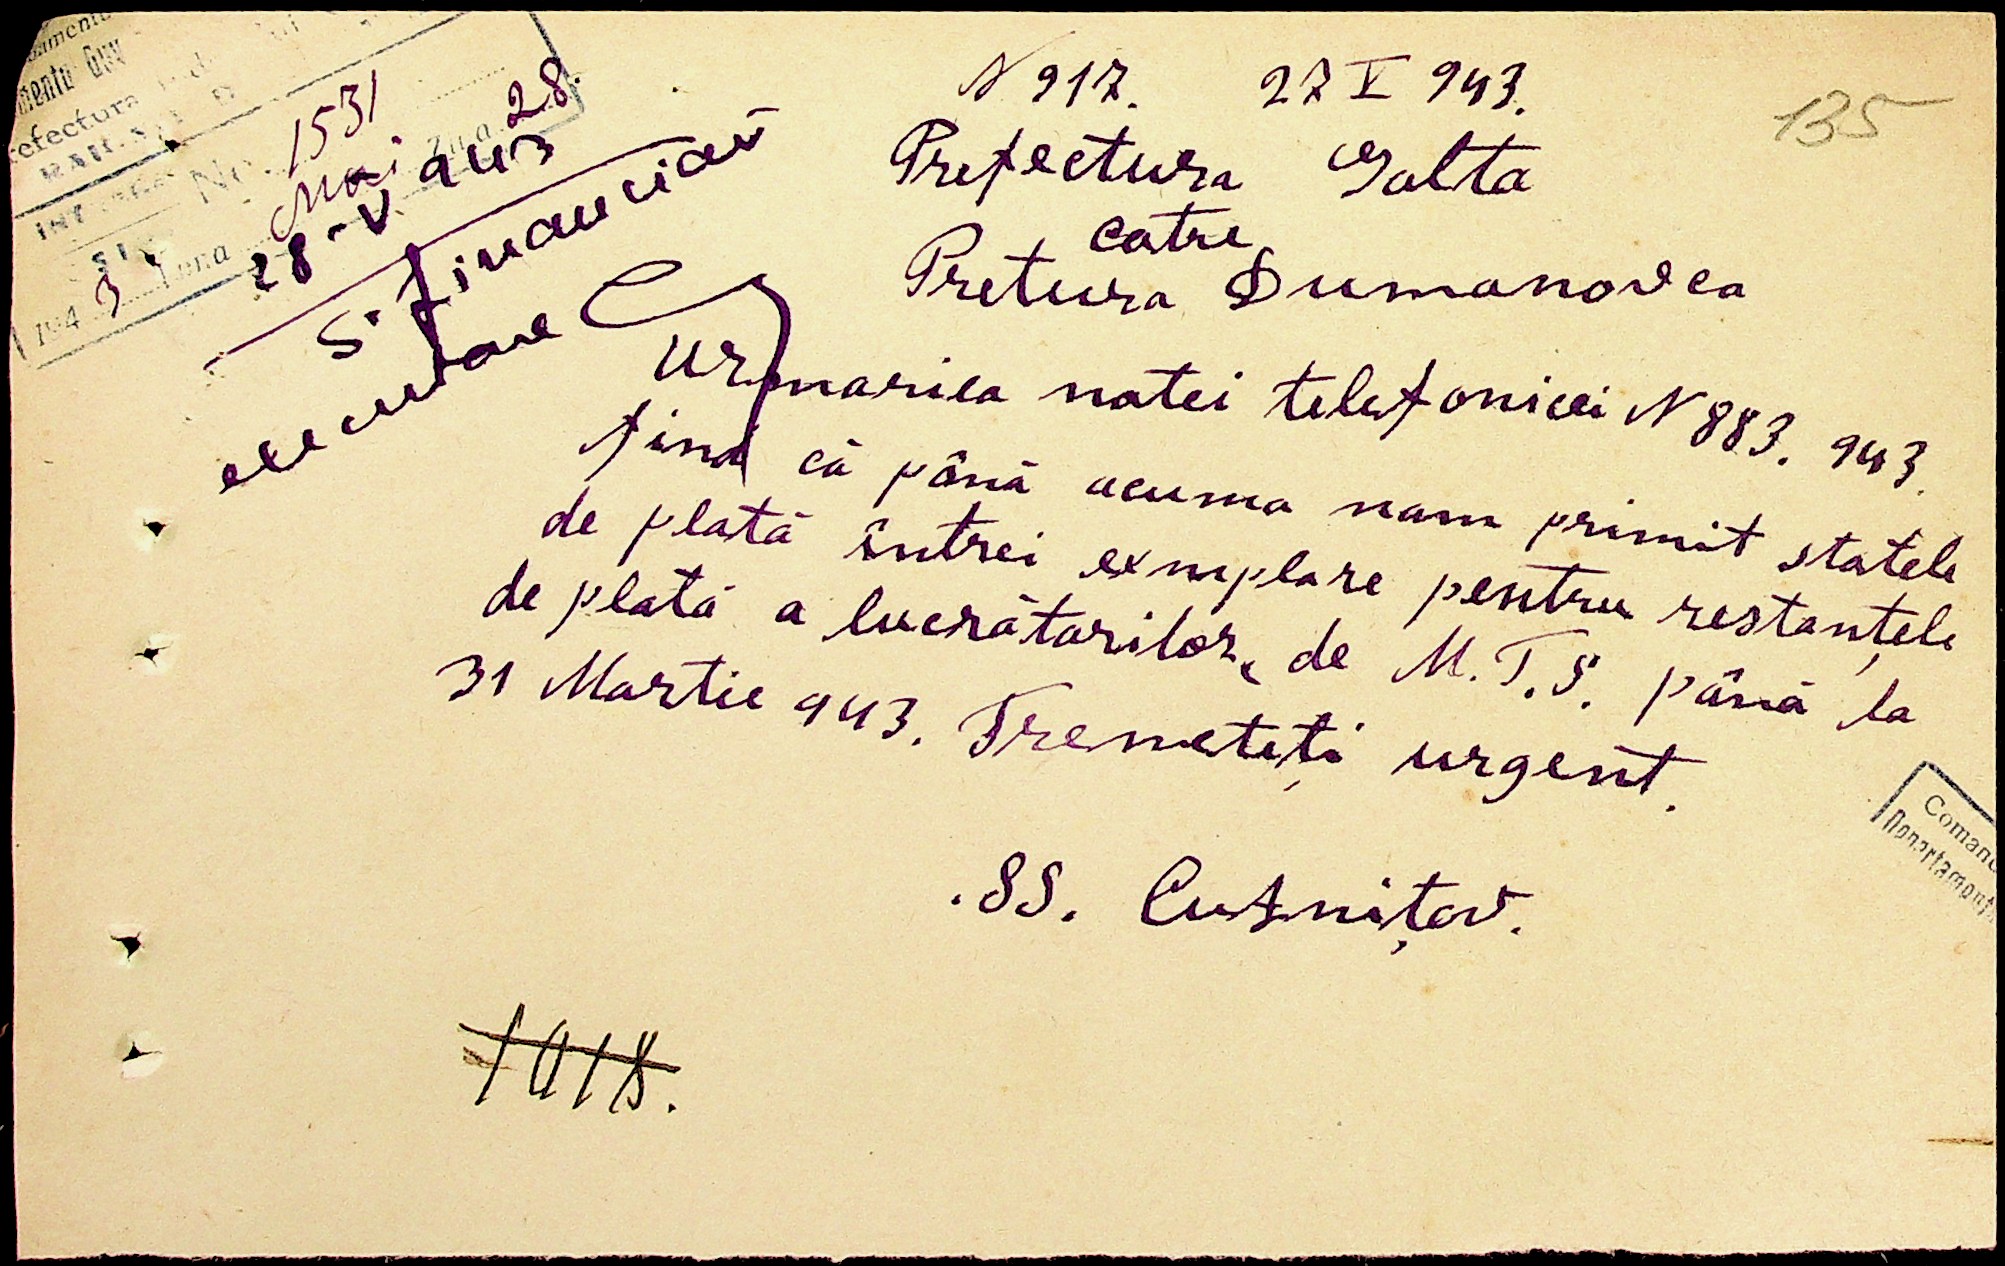 N 917. 27 V 943.
135
Prefectura Golta
catre
Pretura Dumanovca
Urmariea notei telefonicei N 883. 943.
find că până acuma nam primit statele
de plată întrei exmplare pentru restanțele
de plată a lucrătorilor, de M.T.S. până la
31 Martie 943. Tremeteți urgent.
.SS. Cuznițov.
1018.
1531
Mai 28.
28-V 943
S. financiar
executare
efectura
No. Ziua
194 3 Luna
Coman